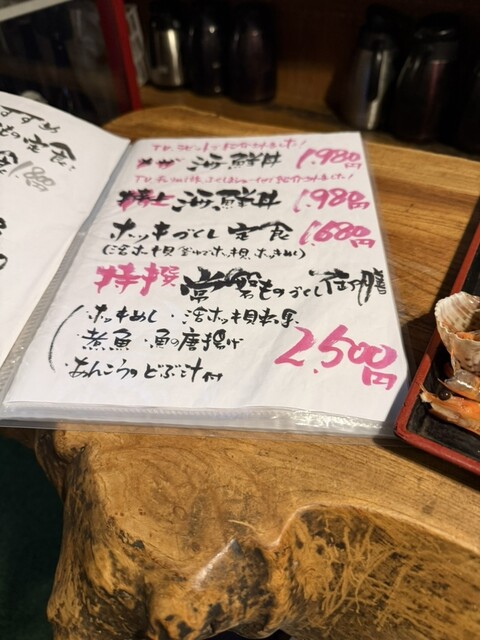 すすめ
の定食
TV.ラビットで紹介されました!
メガ 海鮮丼 1.980円
で紹介されました!
特上 海鮮丼 1.980円
ホッキづくし定食 1.680円
特撰 常磐ものづくし御膳
・ホッキめし ・活ホッキ貝刺身
・煮魚 ・魚の唐揚げ
・あんこうのどぶ汁付
2.500円